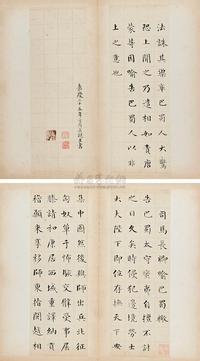 法誅其渠率巴蜀人大驚
恐上聞之乃遣相如責唐
蒙等因喻告巴蜀人以非
上之意也
嘉慶二十五年
司馬長卿喻巴蜀檄
告巴蜀太守蠻夷自擅不討
之日久矣時侵犯邊境勞士
大夫陛下即位存撫天下安
集中國然後興師出兵北征
匈奴單于怖駭交臂受事屈
膝請和康居西域重譯納貢
稽顙來享移師東指閩越相